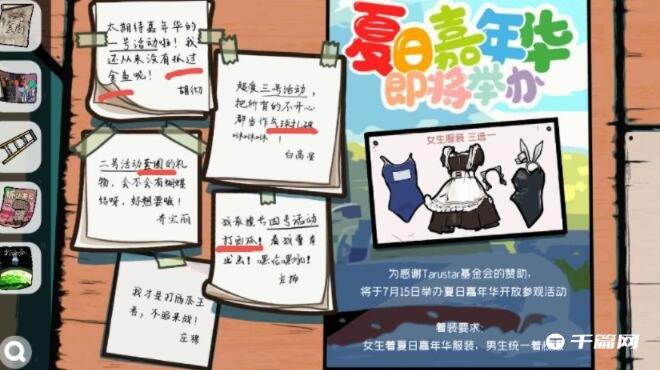 太期待嘉年华的
一号活动啦！我
还从来没有抓过
金鱼呢！
胡彻
超爱三号活动，
把所有的不开心
都当作气球扎破
咻咻咻！
白高星
二号活动套圈的礼
物，会不会有蝴蝶
结呀，好想要哦！
奇宝丽
我最擅长四号活动
打西瓜！看我露身
出去！嘿哈嘿哈！
我才是打西瓜王
者，不服来战！
庄稀
夏日嘉年华
即将举办
女生服装 三选一
为感谢Tarustar基金会的赞助，
将于7月15日举办夏日嘉年华开放参观活动
着装要求：
女生着夏日嘉年华服装，男生统一着
千篇网